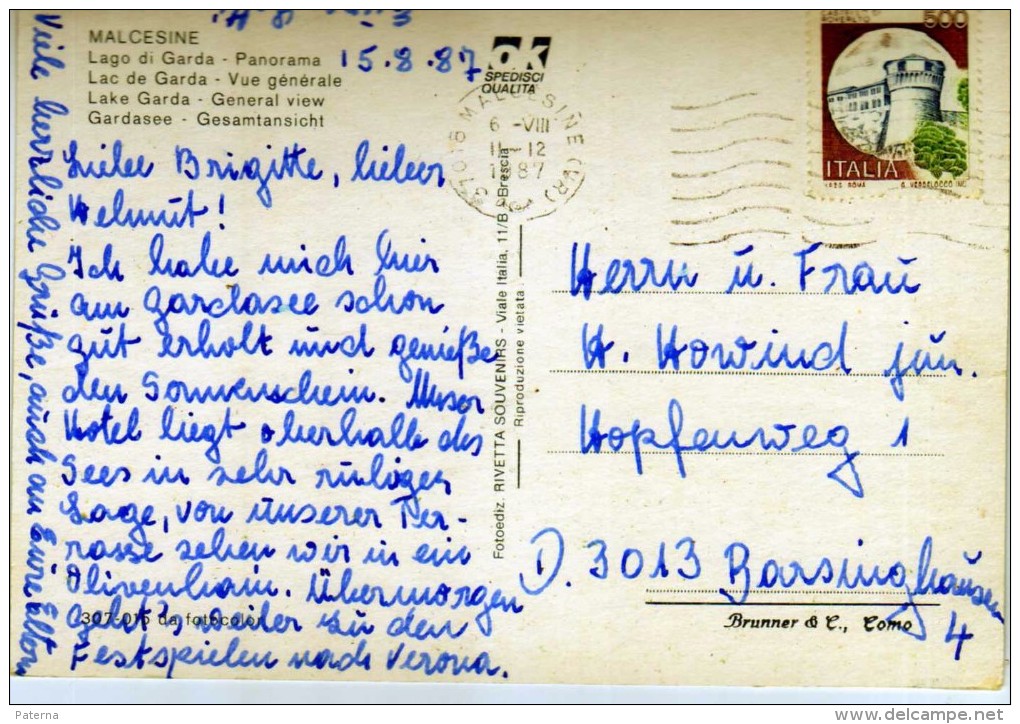 MALCESINE
Lago di Garda - Panorama
Lac de Garda - Vue générale
Lake Garda - General view
Gardasee - Gesamtansicht
15.8.87
SPEDISCI
QUALITÀ
Liebe Brigitte, lieber
Helmut!
Ich habe mich hier
am Gardasee schon
gut erholt und genieße
den Sonnenschein. Unser
Hotel liegt oberhalb des
Sees in sehr ruhiger
Lage, von unserer Ter-
rasse sehen wir in ein
Olivenhain. Übermorgen
geht's weiter zu den
Festspielen nach Verona.
Viele herrliche Grüße, auch an Eure Eltern
307-015 da fotocolor
Fotoediz. RIVETTA SOUVENIRS - Viale Italia, 11/B - Brescia
Riproduzione vietata
MALCESINE (VR)
6 -VIII
12
87
500
ITALIA
Herrn u. Frau
H. Howind jun.
Hopfenweg 1
D. 3013 Barsinghausen
4
Brunner & C., Como
Paterna
www.delcampe.net